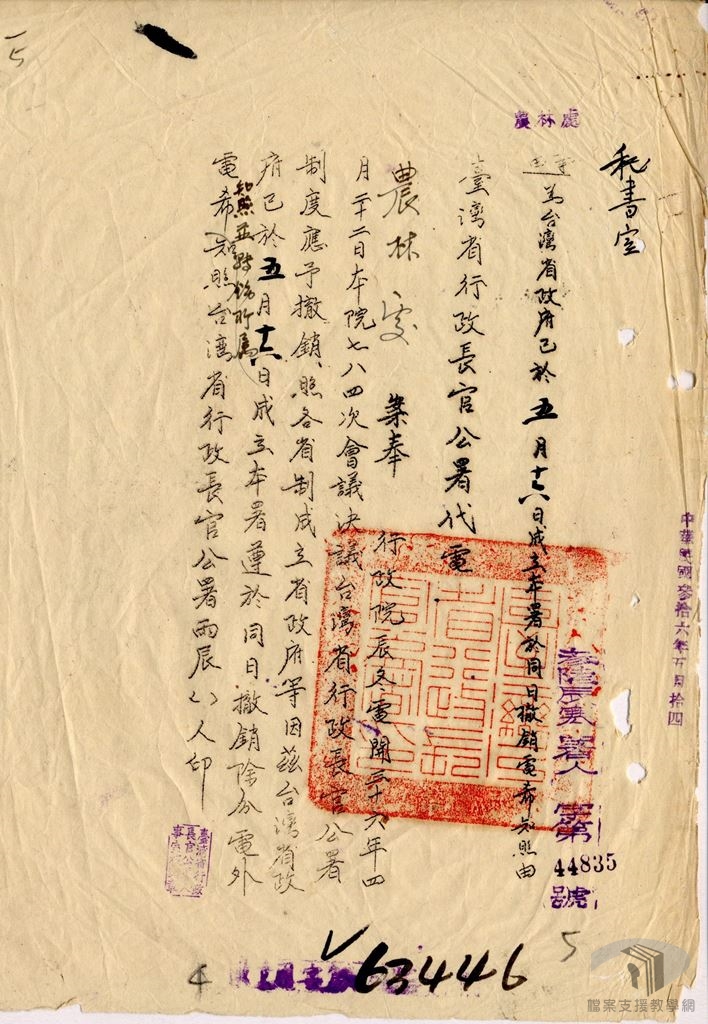 農林處
秘書室
中華民國參拾六年五月拾四
署人字第44835號
為台灣省政府已於五月十六日成立本署於同日撤銷電希知照由
臺灣省行政長官公署代電
農林處 案奉
行政院辰冬電開三十六年四
月二十二日本院七八四次會議決議台灣省行政長官公署
制度應予撤銷、照各省制成立省政府等因茲台灣省政
府已於五月十六日成立本署遵於同日撤銷除分電外
知照並轉飭所屬
電希知照台灣省行政長官公署
人印
63446
4
5
檔案支援教學網